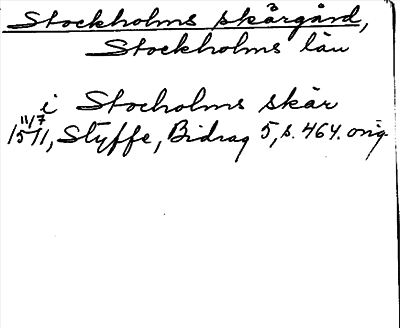 Stockholms skärgård,
Stockholms län
i Stocholms skär
11/7
1571, Styffe, Bidrag 5, s. 464. orig.